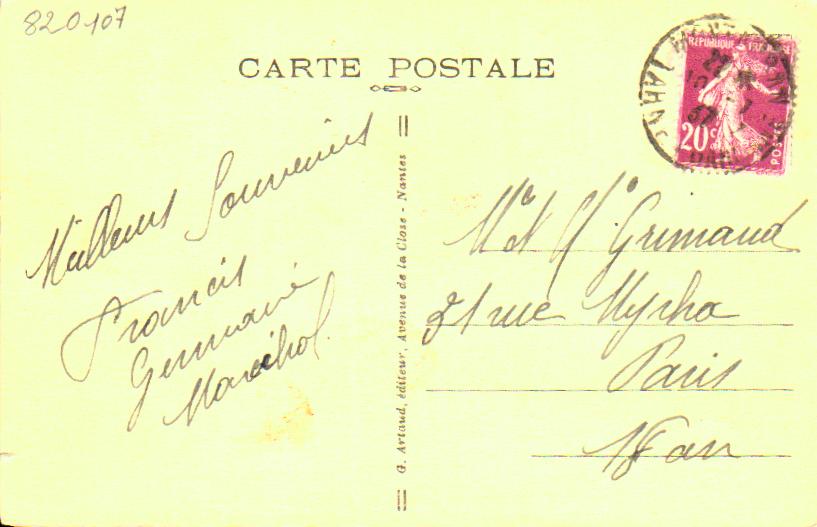 820107
CARTE POSTALE
REPUBLIQUE FRANCAISE
20c
POSTES
Meilleurs Souvenirs
Francis
Germaine
Maréchal
G. Artaud, éditeur, Avenue de la Close - Nantes
Mr et Me Grimaud
21 rue Myrha
Paris